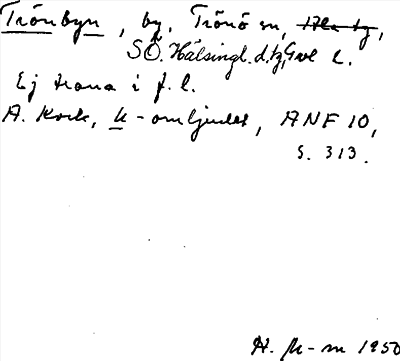 Trönbyn, by, Trönö sn,
SÖ. Hälsingl. d. tg, Gvl L.
Ej trana i f. l.
A. Kock, u-omljudet, ANF 10,
s. 313.
1950